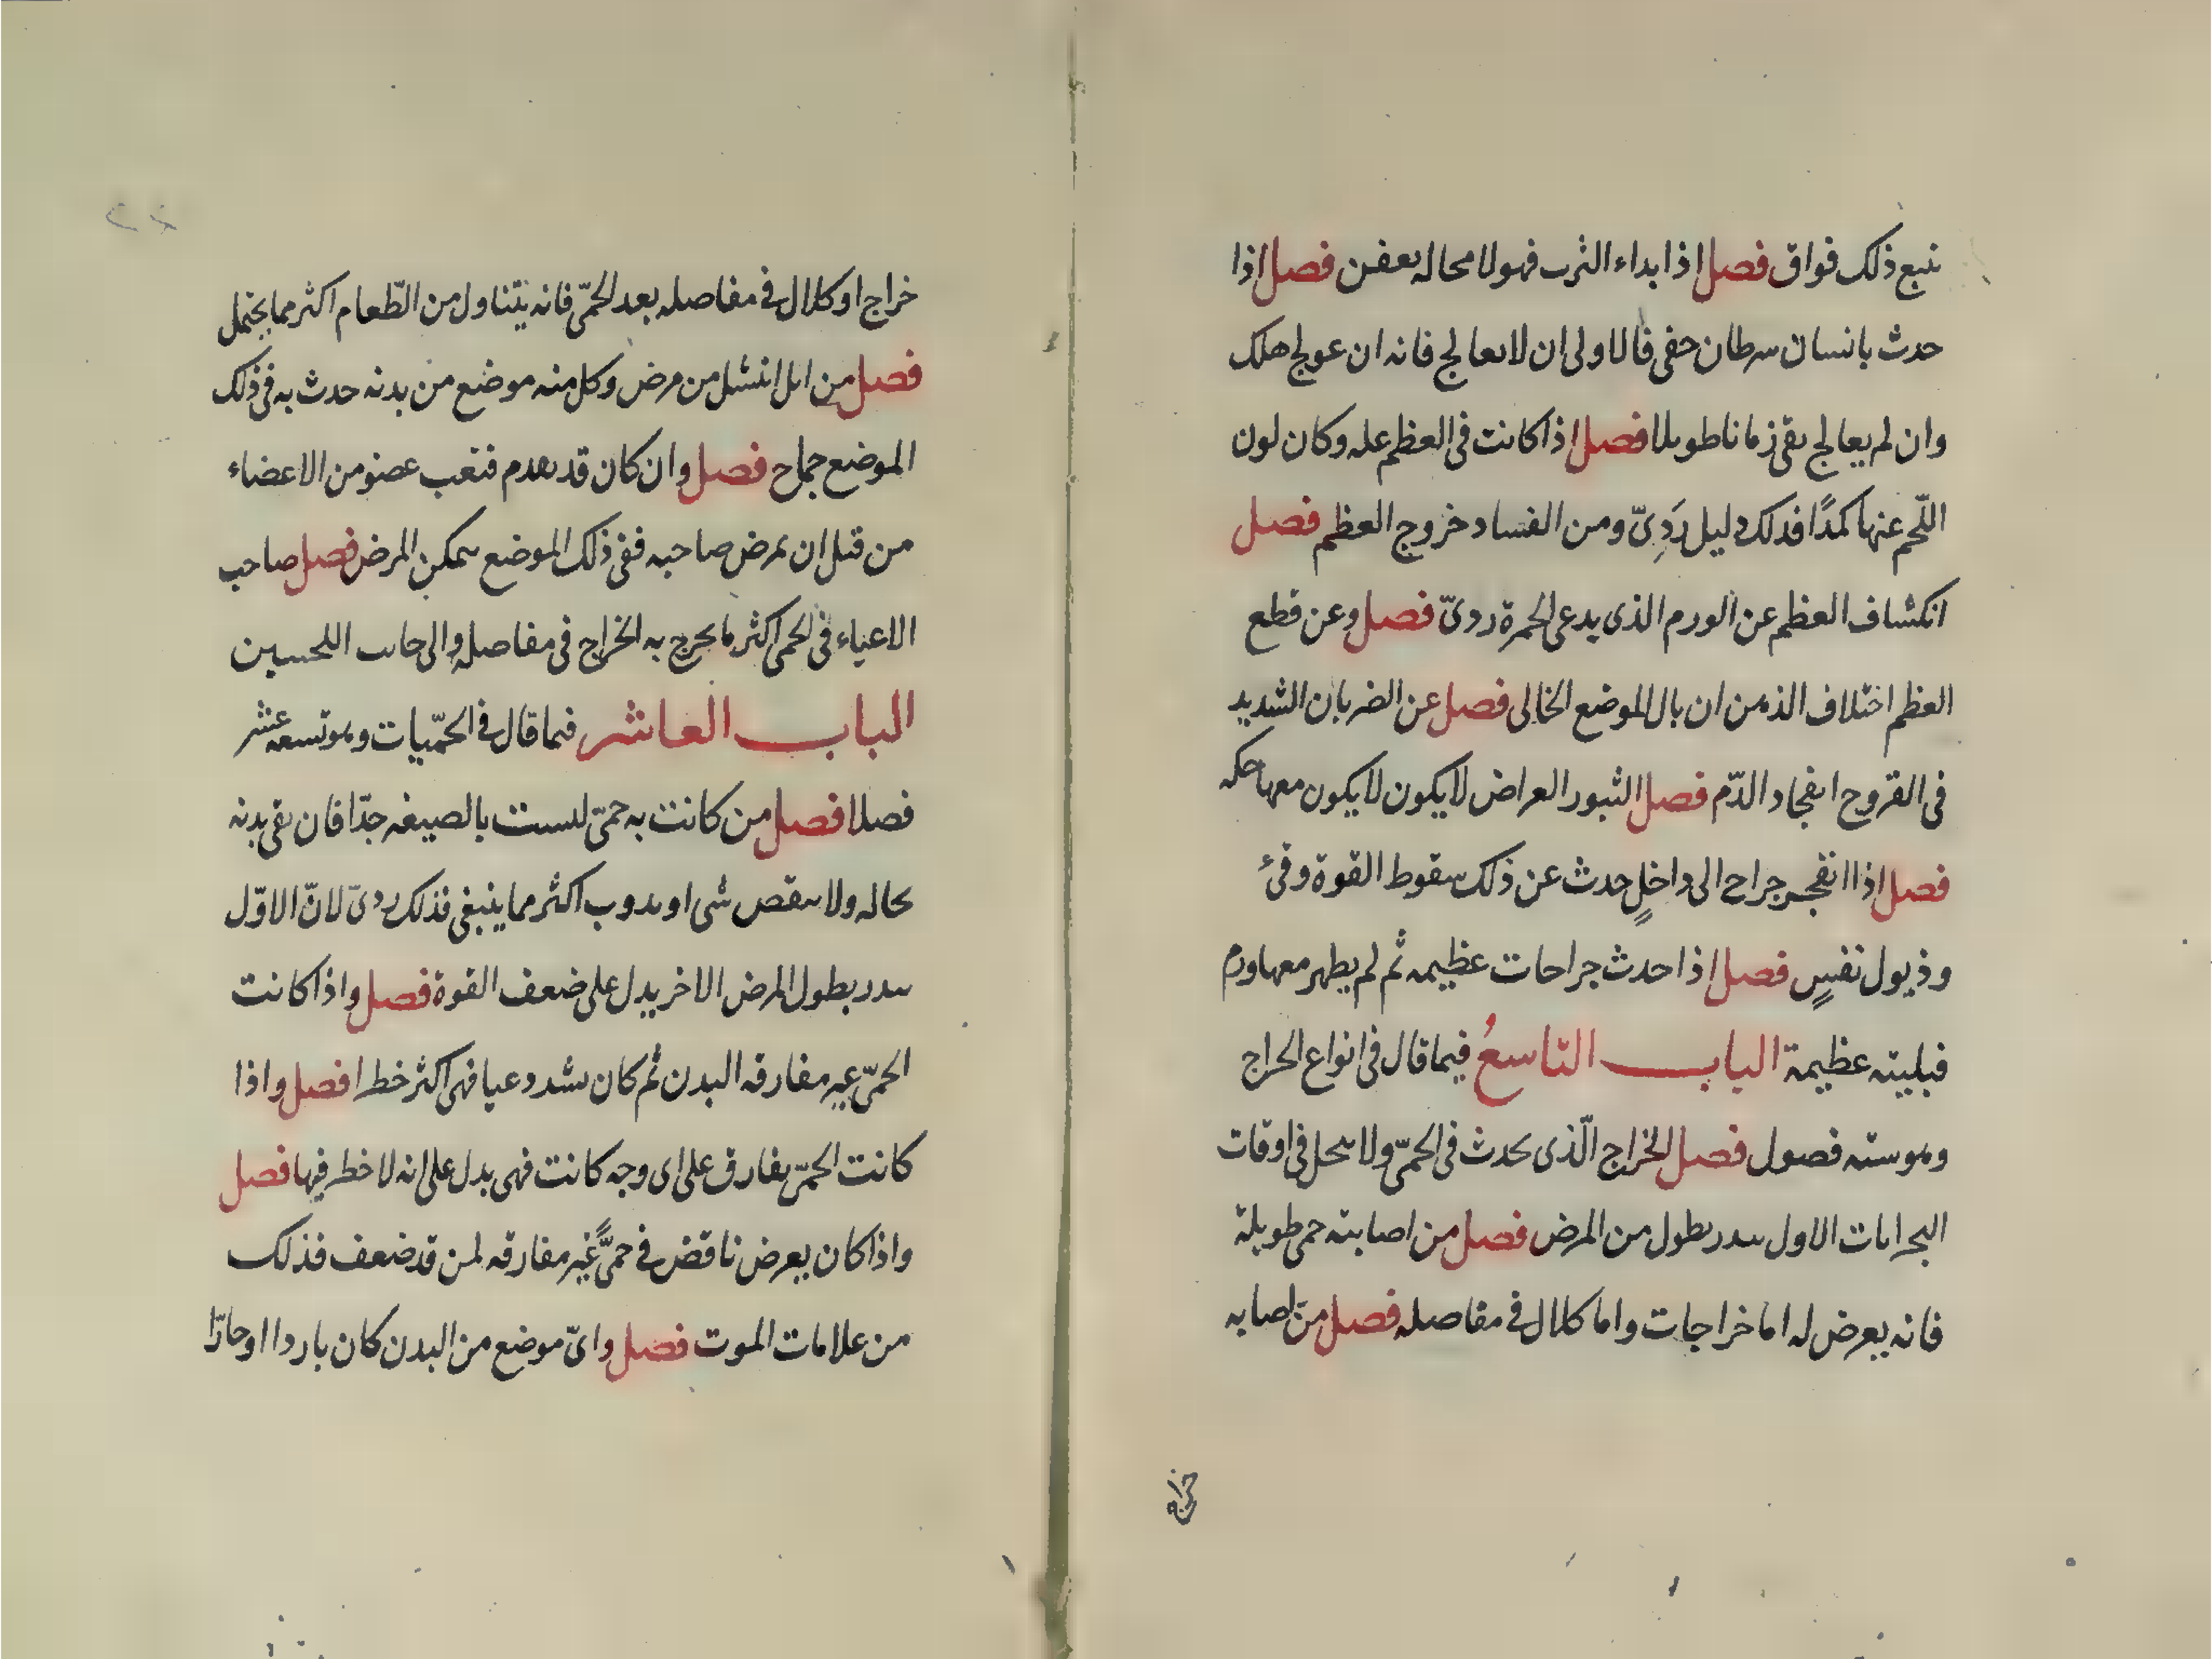 نتبع ذلك فواق فصل اذا بداء الثرب فهو لا محاله يعفن فصل اذا
حدث بانسان سرطان خفى فالاولى ان لا يعالج فانه ان عولج هلك
وان لم يعالج بقى زمانا طويلا فصل اذا كانت فى العظم عله وكان لون
اللّحم عنها كمدًا فذلك دليل رَدِىّ ومن الفساد خروج العظم فصل
انكشاف العظم عن الورم الذى يدعى الحمرة ردىّ فصل وعن قطع
العظم اختلاف الذهن ان بال الموضع الخالى فصل عن الضربان الشديد
فى القروح انفجاد الدّم فصل الثبور العراض لا يكون لا يكون معها حكه
فصل اذا انفجر جراح الى داخلٍ حدث عن ذلك سقوط القوة وقئ
وذبول نفسٍ فصل اذا حدث جراحات عظيمه ثم لم يظهر معها ورم
فبليته عظيمة الباب التاسعُ فيما قال فى انواع الخراج
وهو سته فصول فصل الخراج الّذى يحدث فى الحمّى ولا ينحل فى اوقات
البحرانات الاول ينذر بطول من المرض فصل من اصابته حمى طويلة
فانه يعرض له اما خراجات واما كلال فى مفاصله فصل من اصابه
خراج
خراج او كلال فى مفاصله بعد الحمّى فانه يتناول من الطّعام اكثر مما يحتمل
فصل من انتشل من مرض وكل منه موضع من بدنه حدث به فى ذلك
الموضع جماح فصل وان كان قد تقدم فتعب عضو من الاعضاء
من قبل ان يمرض صاحبه ففى ذلك الموضع يتمكن المرض فصل صاحب
الاعياء فى الحمى اكثر ما يخرج به الخراج فى مفاصله والى جانب اللحيين
الباب العاشر فيما قال فى الحمّيات وهو تسعة عشر
فصلا فصل من كانت به حمّى ليست بالصيغه جدّا فان بقى بدنه
بحاله ولا ينقص شى او يذوب اكثر مما ينبغى فذلك ردىّ لانّ الاوّل
ينذر بطول المرض الاخر يدل على ضعف القوة فصل واذا كانت
الحمّى غير مفارقه البدن ثم كان يشتد وعيا فهى اكثر خطرا فصل واذا
كانت الحمّى يفارق على اى وجه كانت فهى يدل على انه لا خطر فيها فصل
واذا كان يعرض ناقض فى حمىًّ غير مفارقه لمن قد ضعف فذلك
من علامات الموت فصل واىّ موضع من البدن كان باردا او حارّا